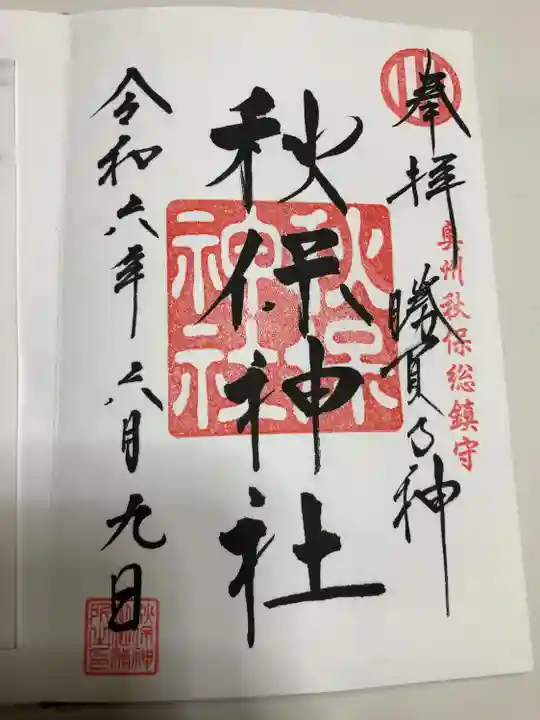 奉拝 勝負の神
奥州秋保総鎮守
秋保神社
秋保
神社
令和六年六月九日